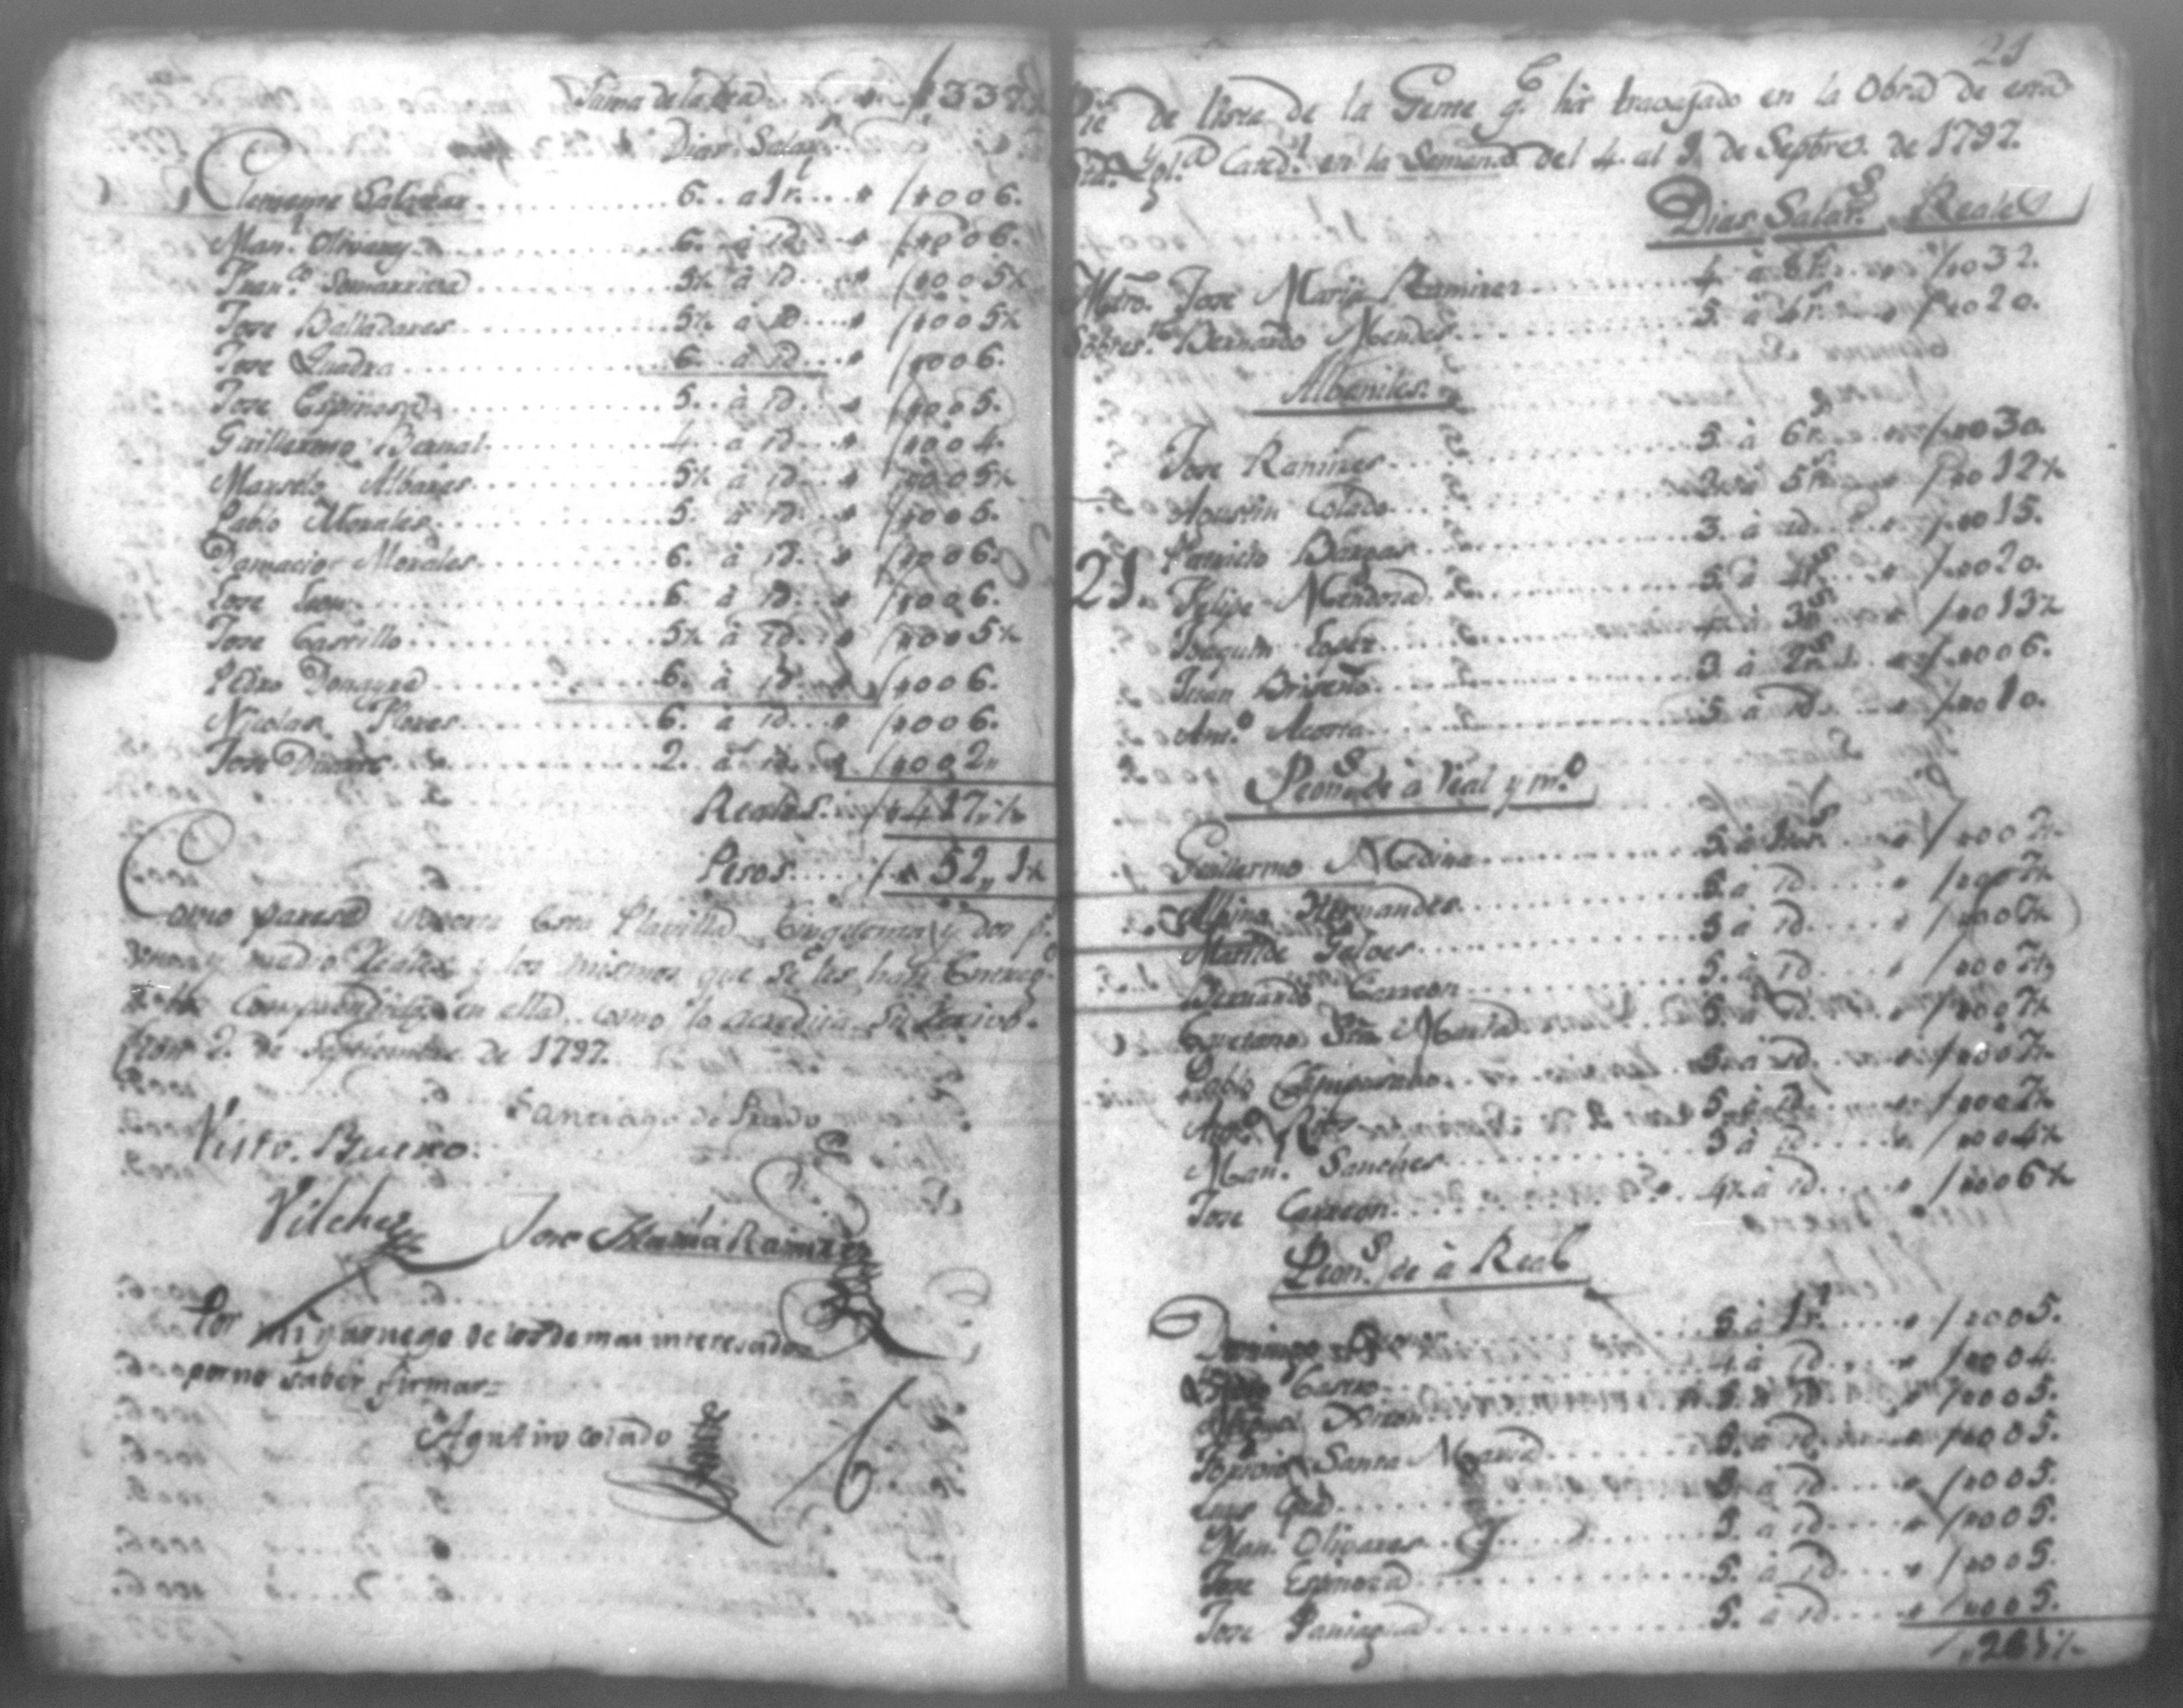 Suma de la bta. . . . /,,337.½
Dias Salar.s
Clemente Salazar. . . . . 6. . a 1 r.l . . . /,,006.
Man.l Olivares. . . . . 6. . à id. . . /,,006.
Fran.co Somarriba. . . . . 5½ à id. . . /,,005½
Jose Balladares. . . . . 5½ à id. . . /,,005½
Jose Quadra. . . . . 6. . à id. . . /,,006.
Jose Espinosa. . . . . 5. . à id. . . /,,005.
Guillermo Bernal. . . . . 4. . à id. . . /,,004.
Marselo Albares. . . . . 5½ à id. . . /,,005½
Pablo Morales. . . . . 5. à id. . . /,,005.
Damacio Morales. . . . . 6. à id. . . /,,006.
Jose Leon. . . . . 6. à id. . . /,,006.
Jose Castillo. . . . . 5½ à id. . . /,,005½
Pedro . . . . . 6. à id. . . /,,006.
Nicolas Flores. . . . . 6. à id. . . /,,006.
Jose . . . . . 2. à id. . . /,,002,,
Reales. . . /,,417,,½
Pesos. . . . /,, 52,, 1½
Como parese importa Esta Planilla Cinquenta y dos p.s
uno y medio Reales y los mismos que se les han Entreg.o
a los Comprendidos en ella, como lo acredita su Recivo.
Leon 2. de Septiembre de 1797.
Santiago de Prado
Visto. Bueno.
Vilchez Jose Maria Ramirez
Por mi y arruego de los demas interesados
por no saber firmar=
Agustino colado
6
21
Pie de lista de la Gente q.e há travajado en la Obra de esta
Sta. Ygl.a Cated.l en la Semana del 4. al 9. de Septbre. de 1797.
Dias Salar.s Reales
Mtro. Jose Maria Ramires. . . . . 4 à 8 r.s . . . /,,032.
Sobres.te Bernardo Mendes. . . . . 5. à 4 r.s . . . /,,020.
Albañiles.
Jose Ramires. . . . . 5. à 6 r.s . . . /,,030.
Agustin Colado. . . . . 2½ à 5 r.s . . . /,,012½
Patricio Bargas. . . . . 3. à id. . . /,,015.
21. Felipe Mendoza. . . . . 5 à 4 r.s . . . /,,020.
Joaquin Lopez. . . . . 3 r.s . . . /,,013½
Juan Briseño. . . . . 3 à 2 r.s . . . /,,006.
Ant.o Acosta. . . . . 5 à id. . . /,,010.
Peon.s de à real y m.o
Guillermo Medina. . . . . 5 à . . . /,,007½
Albino Hernandes. . . . . 5. à id. . . . /,,007½
Matilde Galves. . . . . 5 à id. . . . /,,007½
Bernardo Carreon. . . . . 5. à id. . . . /,,007½
Cayetano Sta. Maria. . . . . 5. à id. . . . /,,007½
Pablo . . . . . 5. à id. . . . /,,007½
. . . . . 5. à id. . . . /,,007½
Man.l Sanches. . . . . 3 à id. . . . /,,004½
Jose Carreon. . . . . 4½ à id. . . . /,,006½
Peon.s de à Real
Domingo . . . . . 5. à 1 r.l . . . /,,005.
Castro. . . . . 4 à id. . . . /,,004.
Miguel . . . . . 5. à id. . . . /,,005.
Santa Maria. . . . . 5. à id. . . . /,,005.
Luis . . . . . 5. à id. . . . /,,005.
Man.l Olivares. . . . . 5. à id. . . . /,,005.
Jose Espinoza. . . . . 5. à id. . . . /,,005.
Jose Paniagua. . . . . 5. à id. . . . /,,005.